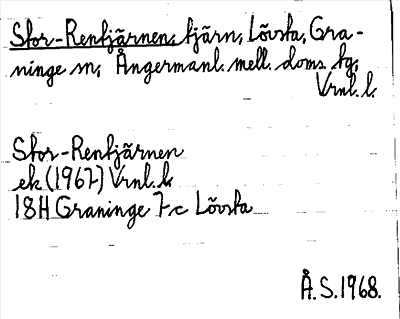 Stor-Rentjärnen, tjärn, Lövsta, Gra-
ninge sn, Ångermanl. mell. doms. tg,
Vrnl. l.
Stor-Rentjärnen
ek (1967) Vrnl. l.
18H Graninge 7c Lövsta
Å.S. 1968.